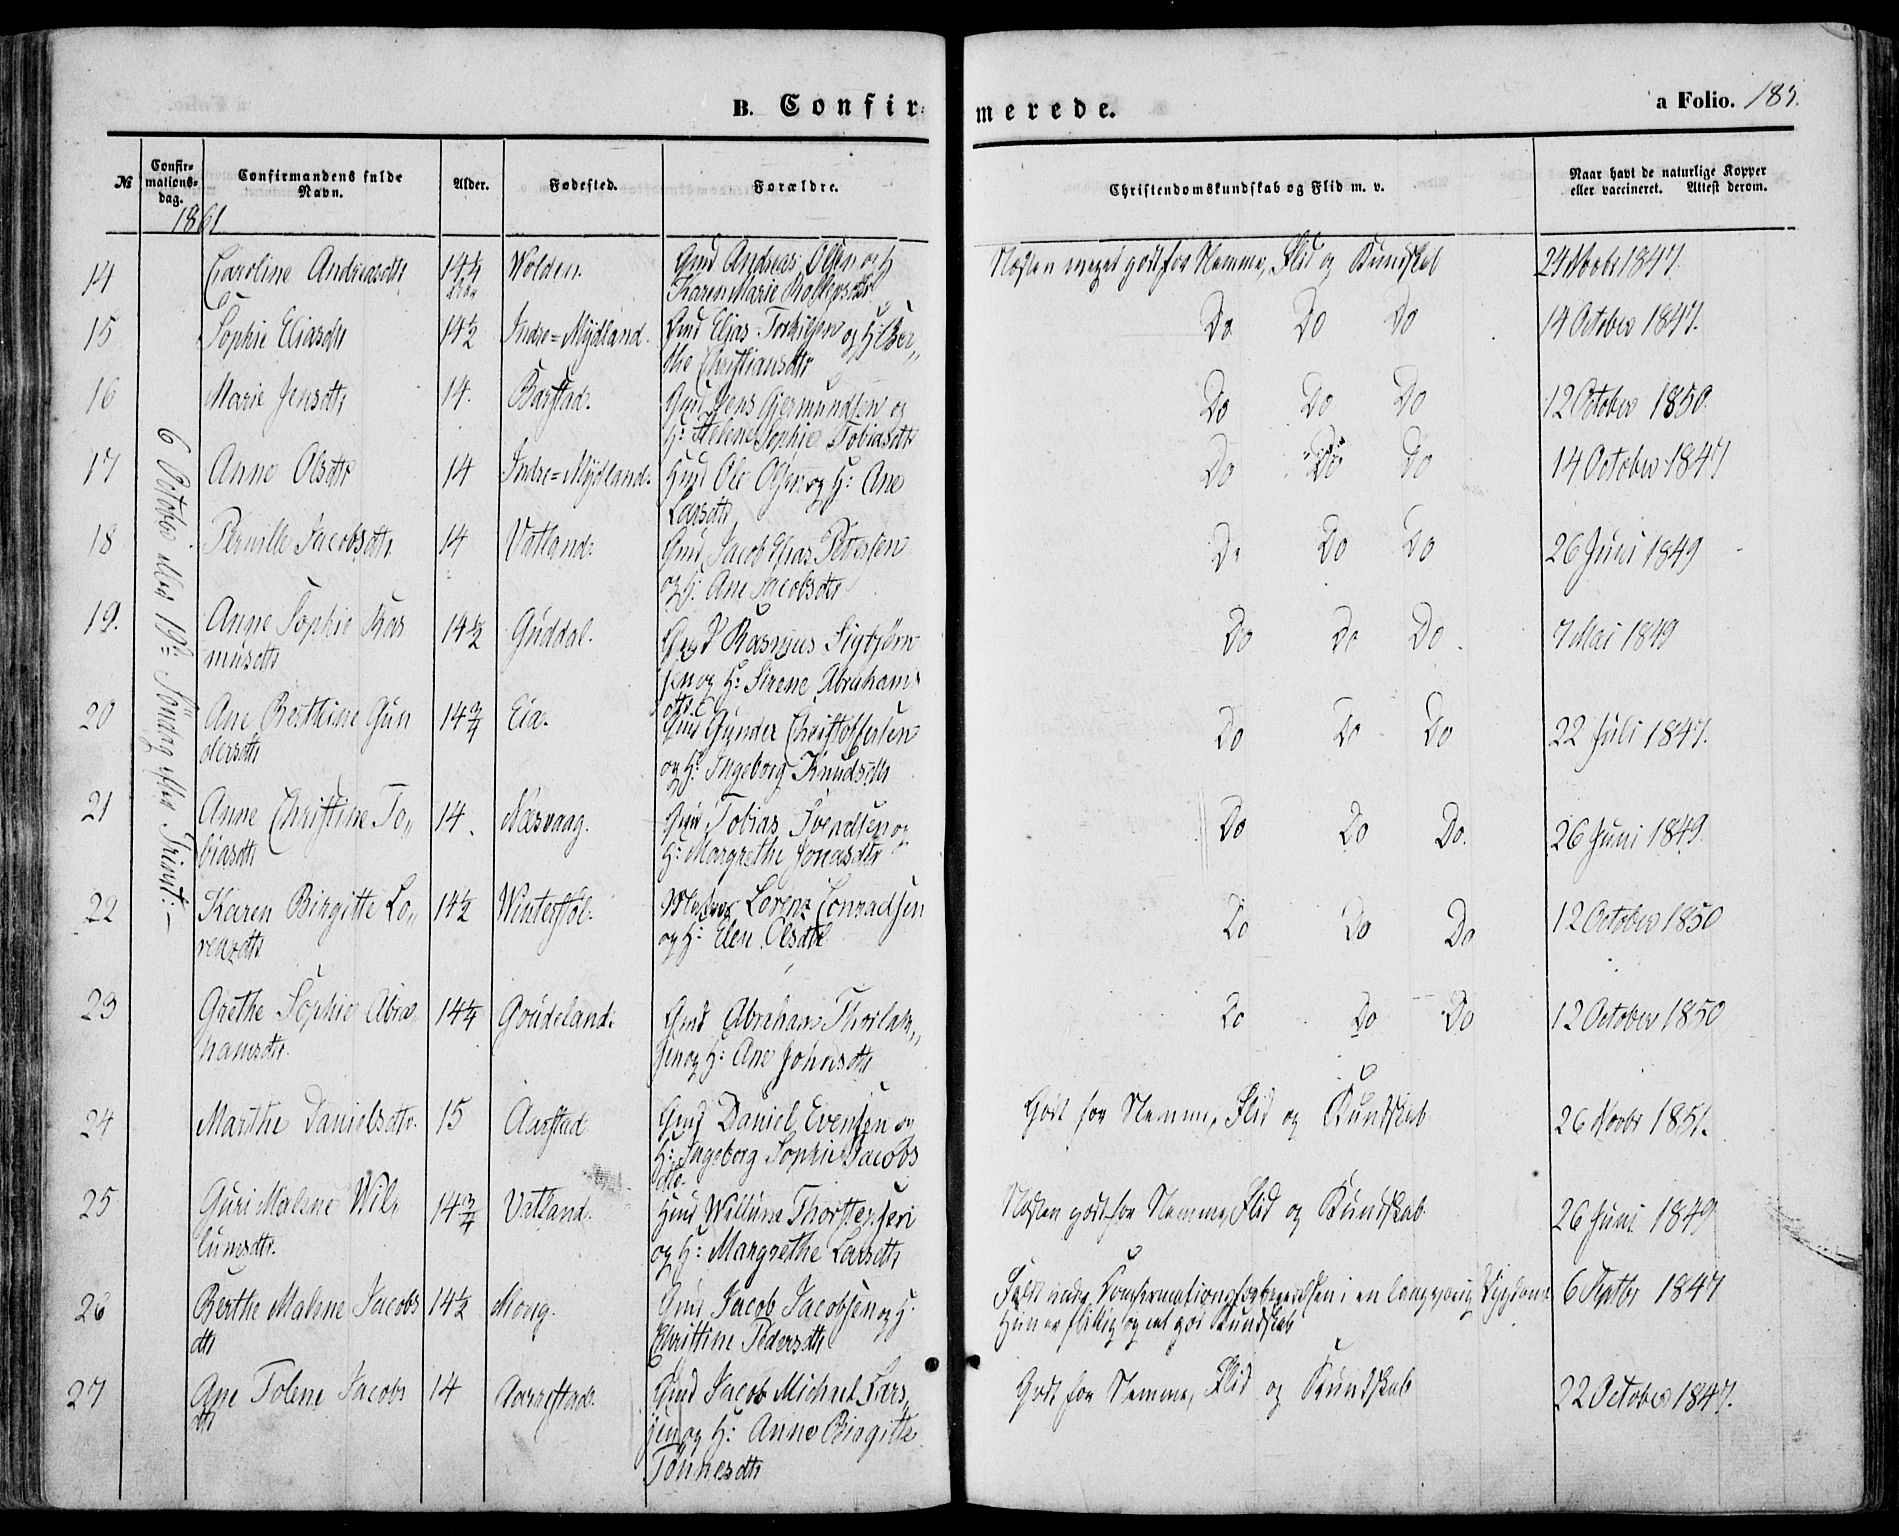 B. Confir-
merede.
a Folio. 185.
№
Confir-
mations-
dag.
Confirmandens fulde
Navn.
Alder.
Fødested.
Forældre.
Christendomskundskab og Flid m. v.
Naar havt de naturlige Kopper
eller vaccineret. Attest derom.
1861
6 October 19de Søndag efter Trinit:
14 Caroline Andreasdtr 14 1/4 Wolden. Gmd Andreas Olsen og H
Karen Marie
Næsten meget godt for Nemme, Flid og Kundskab 24 Novbr 1847.
15 Sophie Eliasdtr 14 1/2 Indre=Mydland. Gmd Elias Torkilsen og H: Ber„
the Christiansdtr
Do Do Do 14 October 1847.
16 Marie Jensdtr 14. Barstad. Gmd Jens Gjermundsen og
H: Helene Sophie Tobiasdtr
Do Do Do 12 October 1850.
17 Anne Olsdtr 14 Indre=Mydland. Hmd Ole Olsen og H: Ane
Larsdtr
Do Do Do 14 October 1847
18 Pernille Jacobsdtr 14 Vatland. Gmd Jacob Elias Petersen
og H: Ane Jacobsdtr
Do Do Do 26 Juni 1849
19. Anne Sophie Ras
musdtr 14 1/2 Guddal. Gmd Rasmus Sigbjørn
sen og H: Sirene Abrahams
dtr
Do Do Do 7 Mai 1849
20 Ane Berthine Gun
dersdtr 14 3/4 Eia. Gmd Gunder Christoffersen
og H: Ingeborg Knudsdtr
Do Do Do 22 Juli 1847.
21 Anne Christine To„
biasdtr 14. Næsvaag. Gmd Tobias Svendsen og
H: Margrethe Jonasdtr
Do Do Do. 26 Juni 1849.
22 Karen Birgitte Lo„
renzdtr 14 1/2 Winterstøl. Lorenz Conradsen
og H: Elen Olsdtr
Do Do Do 12 October 1850
23 Grethe Sophie Abra„
hamsdtr. 14 1/4 Goudeland. Gmd Abraham Thorlak„
sen og H: Ane Johnsdtr
Do Do Do 12 October 1850
24 Marthe Danielsdtr. 15 Aarstad Gmd Daniel Evensen og
H: Ingeborg Sophie Jacobs
dtr.
Godt for Nemme, Flid og Kundskab 26 Novbr 1851.
25 Guri Malene Wil„
lumsdtr. 14 3/4 Vatland. Hmd Willum Thorstensen
og H: Margrethe Larsdtr
Næsten godt for Nemme, Flid og Kundskab. 26 Juni 1849
26 Berthe Malene Jacobs
dtr 14 1/2 Moug. Gmd Jacob Jacobsen og H:
Christine Pedersdtr
Faldt under Confirmationsforberedelsen i en langvarig Sygdom.
Hun er flittig og god Kundskab 6 Septbr 1847
27 Ane Tolene Jacobs
dtr 14 Aarrestad. Gmd Jacob Michael Lars„
sen og H: Anne Birgitte
Tønnesdtr
Godt for Nemme, Flid og Kundskab 22 October 1847.